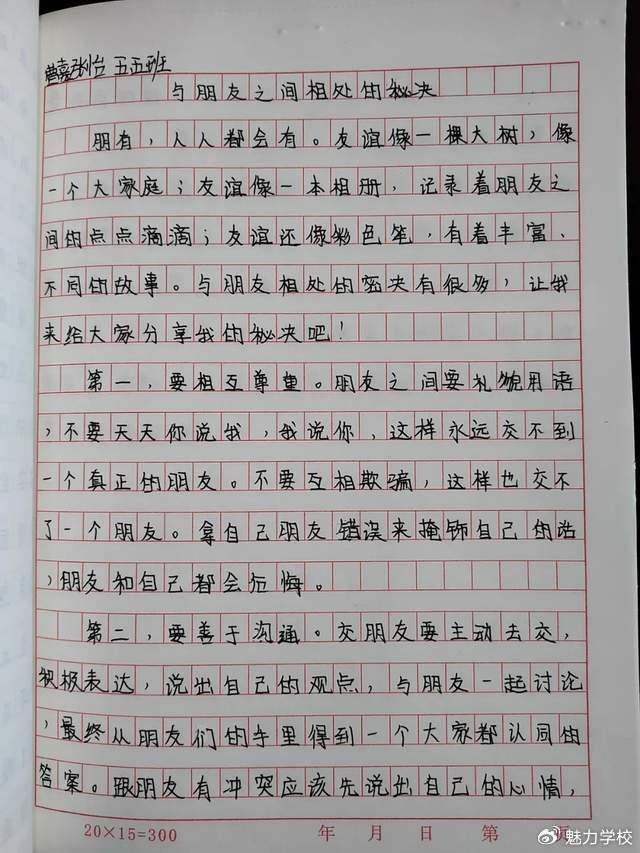 五五班
与朋友之间相处的秘决
朋有,人人都会有。友谊像一棵大树,像
一个大家庭;友谊像一本相册,记录着朋友之
间的点点滴滴;友谊还像彩色笔,有着丰富、
不同的故事。与朋友相处的密决有很多,让我
来给大家分享我的秘决吧!
第一,要相互尊重。朋友之间要礼貌用语
,不要天天你说我,我说你,这样永远交不到
一个真正的朋友。不要互相欺骗,这样也交不
了一个朋友。拿自己朋友错误来掩饰自己的话
,朋友和自己都会后悔。
第二,要善于沟通。交朋友要主动去交,
积极表达,说出自己的观点,与朋友一起讨论
,最终从朋友们的手里得到一个大家都认同的
答案。跟朋友有冲突应该先说出自己的心情,
20×15=300 年 月 日 第 页
魅力学校